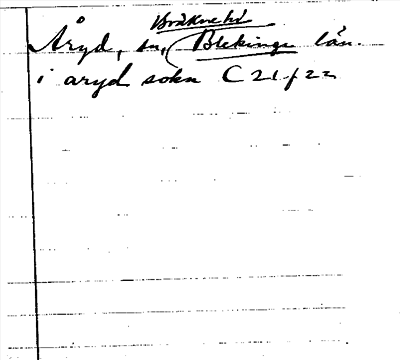 Bräkne hd
Åryd, sn, Blekinge län.
i aryd sokn C 21 f 22